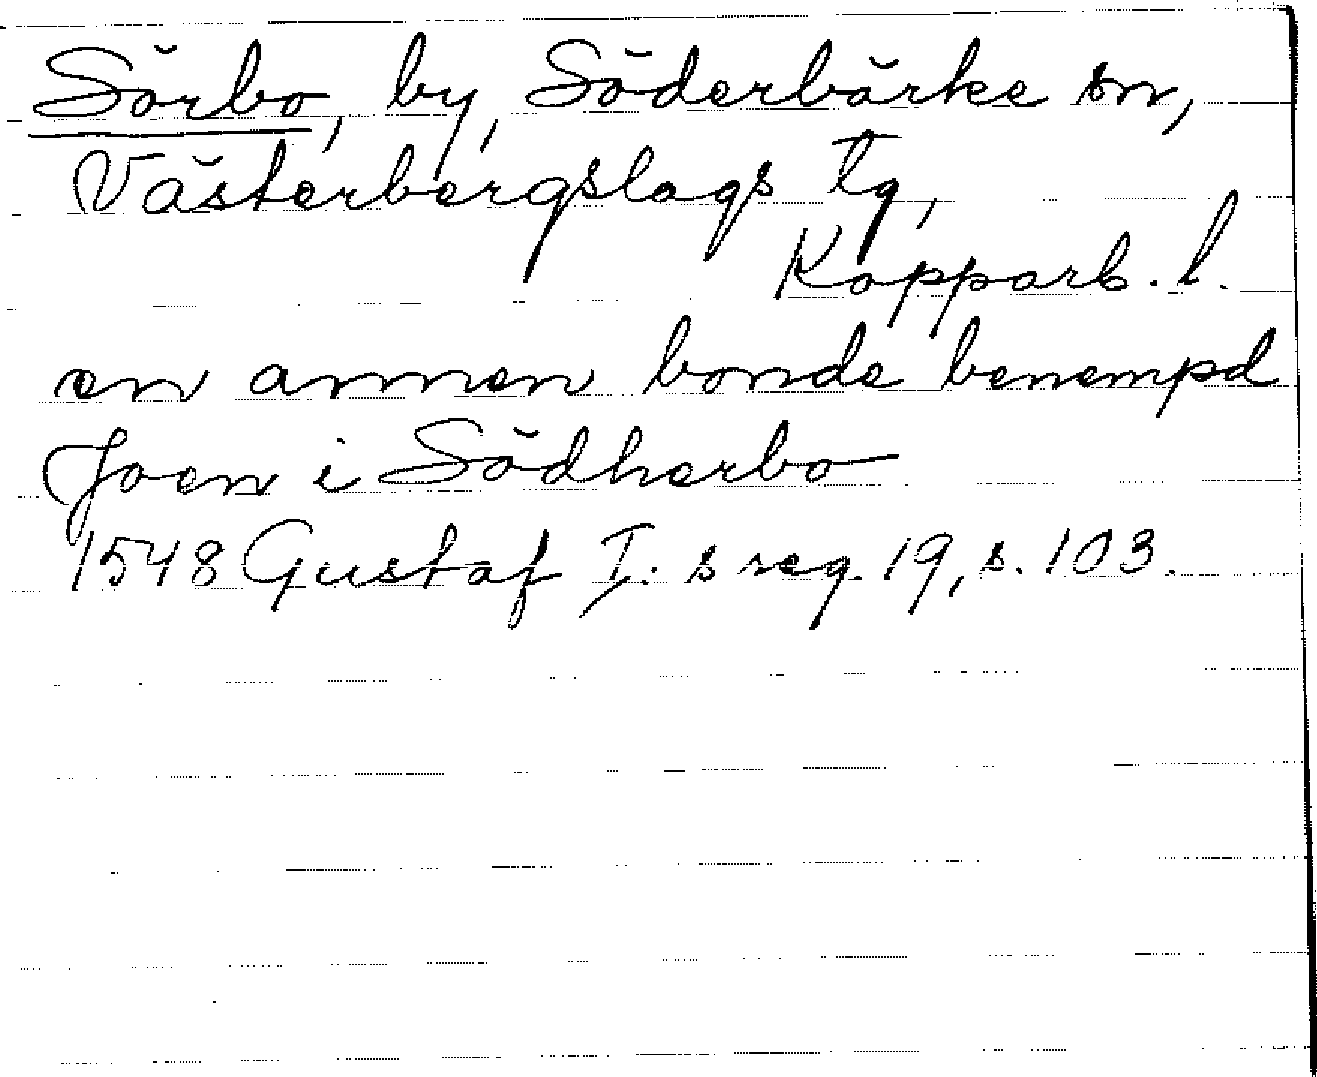 Sörbo, by, Söderbärke sn,
Västerbergslags tg,
Kopparb. l.
en annen bonde benempd
Joen i Södherbo
1548 Gustaf I. s reg. 19, s. 103.